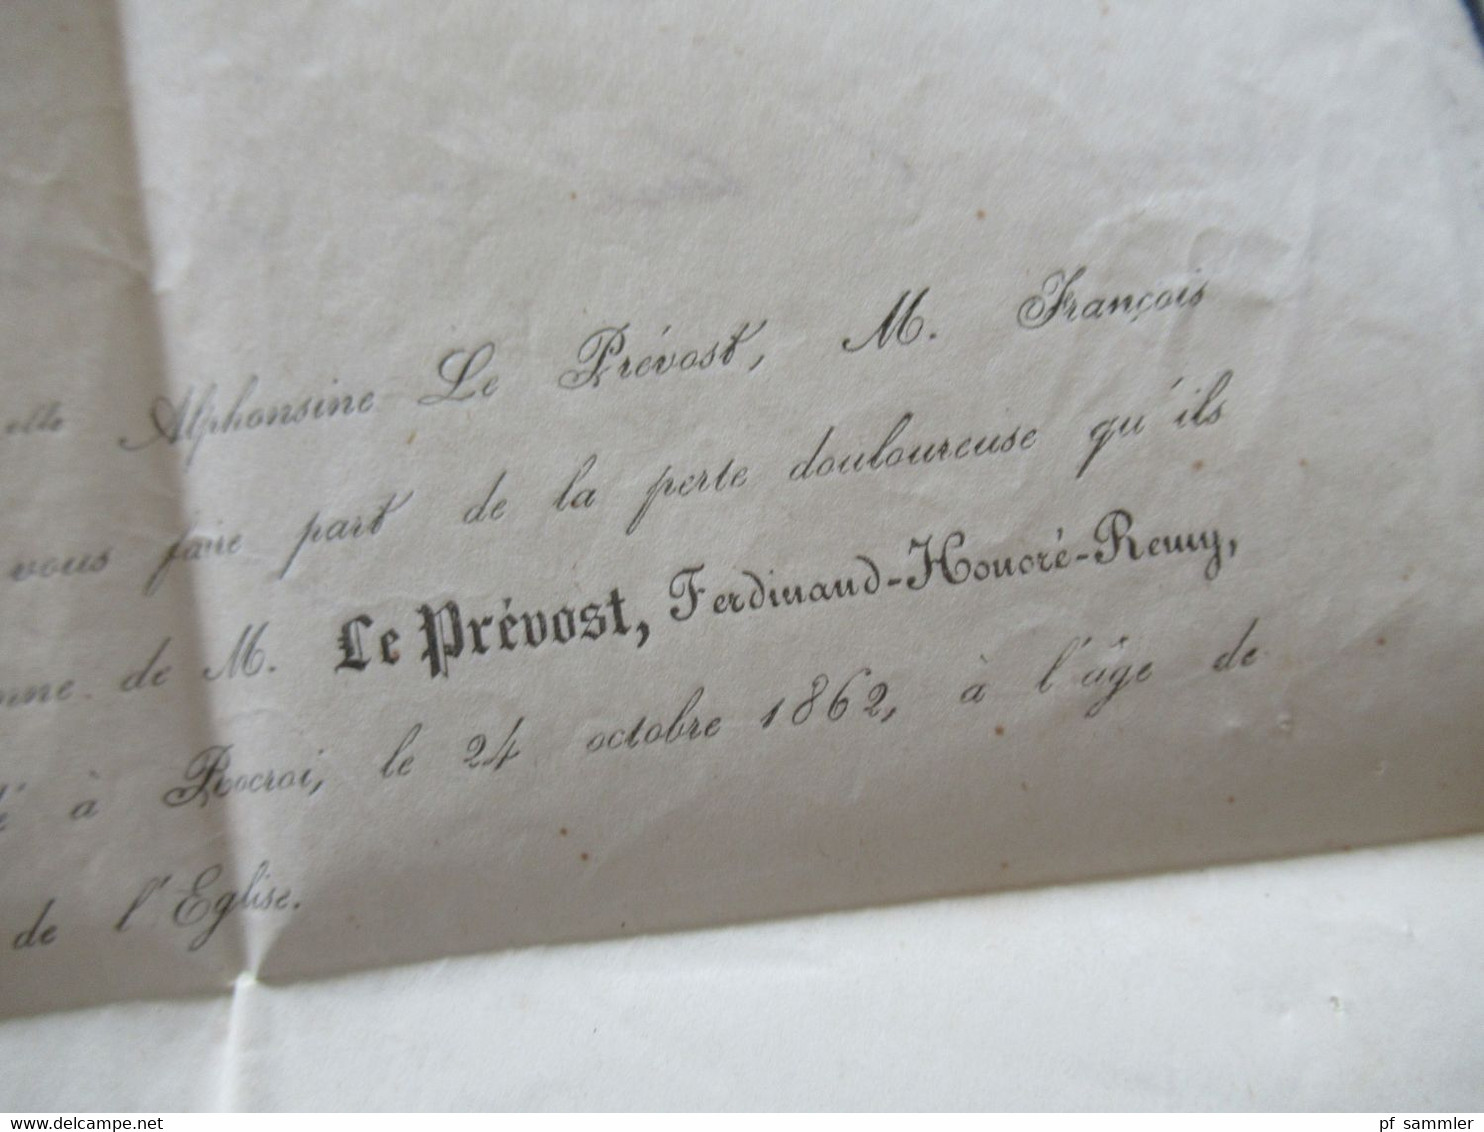 elle Alphonsine Le Prévost, M. François
vous faire part de la perte douloureuse qu'ils
de M. Le Prévost, Ferdinand-Honoré-Remy,
à Rocroi, le 24 octobre 1862, à l'âge de
de l'Eglise.
pf sammler